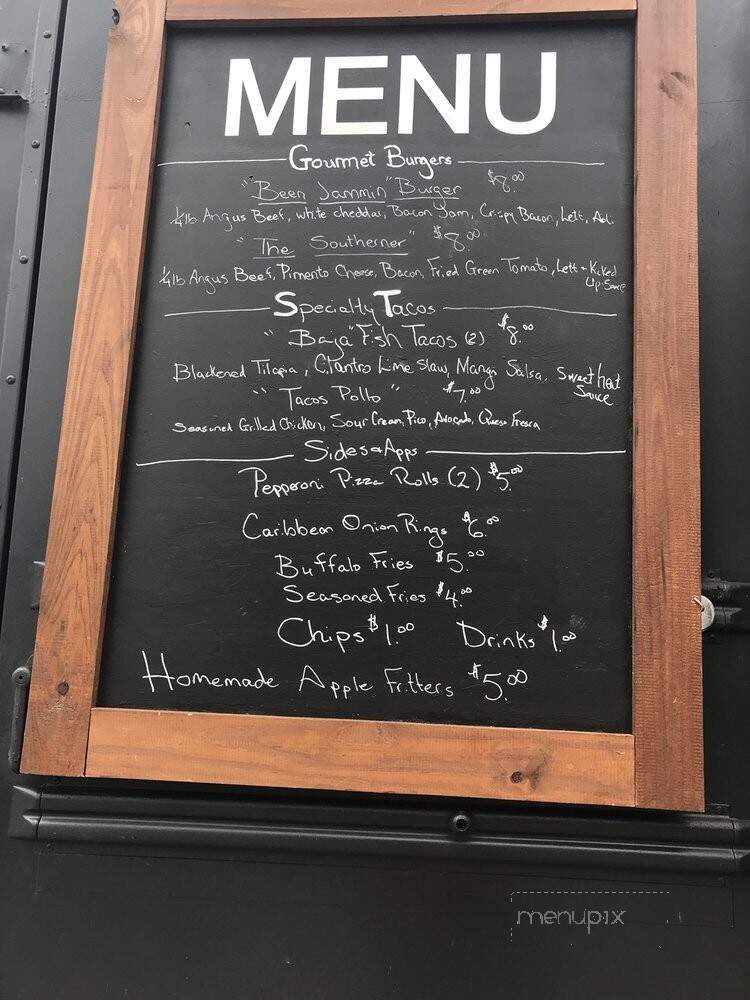 MENU
Gourmet Burgers
"Been Jammin" Burger $8.00
1/4lb Angus Beef, white cheddar, Bacon Jam, Crispy Bacon, Lett,
"The Southerner" $8.00
1/4lb Angus Beef, Pimento Cheese, Bacon, Fried Green Tomato, Lett + Kicked
Up Sauce
Specialty Tacos
"Baja" Fish Tacos (2) $8.00
Blackened Tilapia, Cilantro Lime Slaw, Mango Salsa, Sweet heat
Sauce
"Tacos Pollo" $7.00
Seasoned Grilled Chicken, Sour Cream, Pico, Avocado, Queso Fresca
Sides & Apps
Pepperoni Pizza Rolls (2) $5.00
Caribbean Onion Rings $6.00
Buffalo Fries $5.00
Seasoned Fries $4.00
Chips $1.00 Drinks $1.00
Homemade Apple Fritters $5.00
menupix